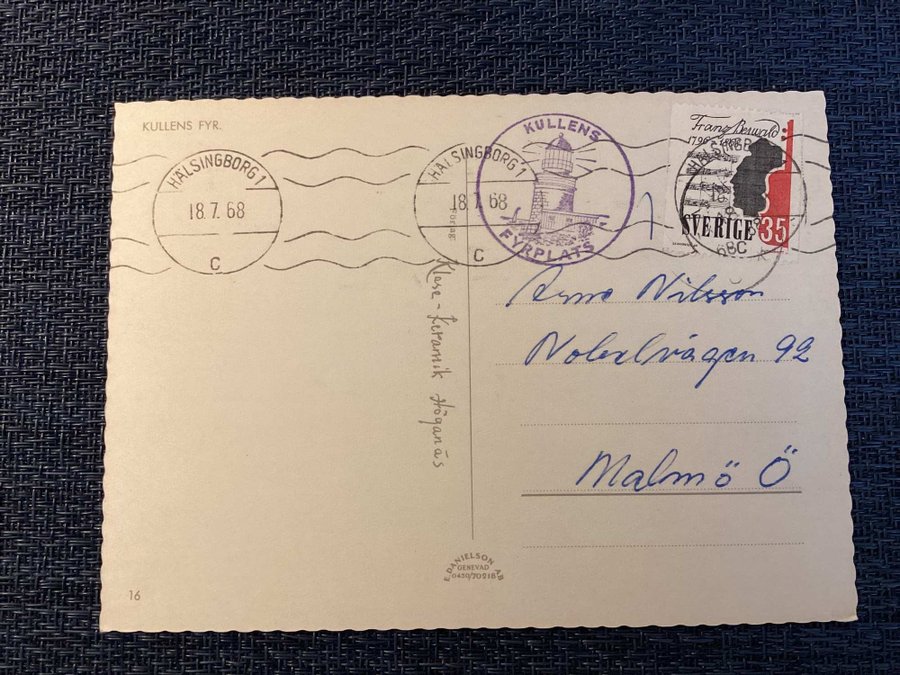 KULLENS FYR.
HÄLSINGBORG 1
18.7.68
C
HÄLSINGBORG 1
18.7.68
C
KULLENS
FYRPLATS
Franz Berwald
SVERIGE 35
Förlag:
Klase-Keramik Höganäs
Arne Nilsson
Nobelvägen 92
Malmö Ö
E. DANIELSON AB
GENEVAD
0430/70218
16